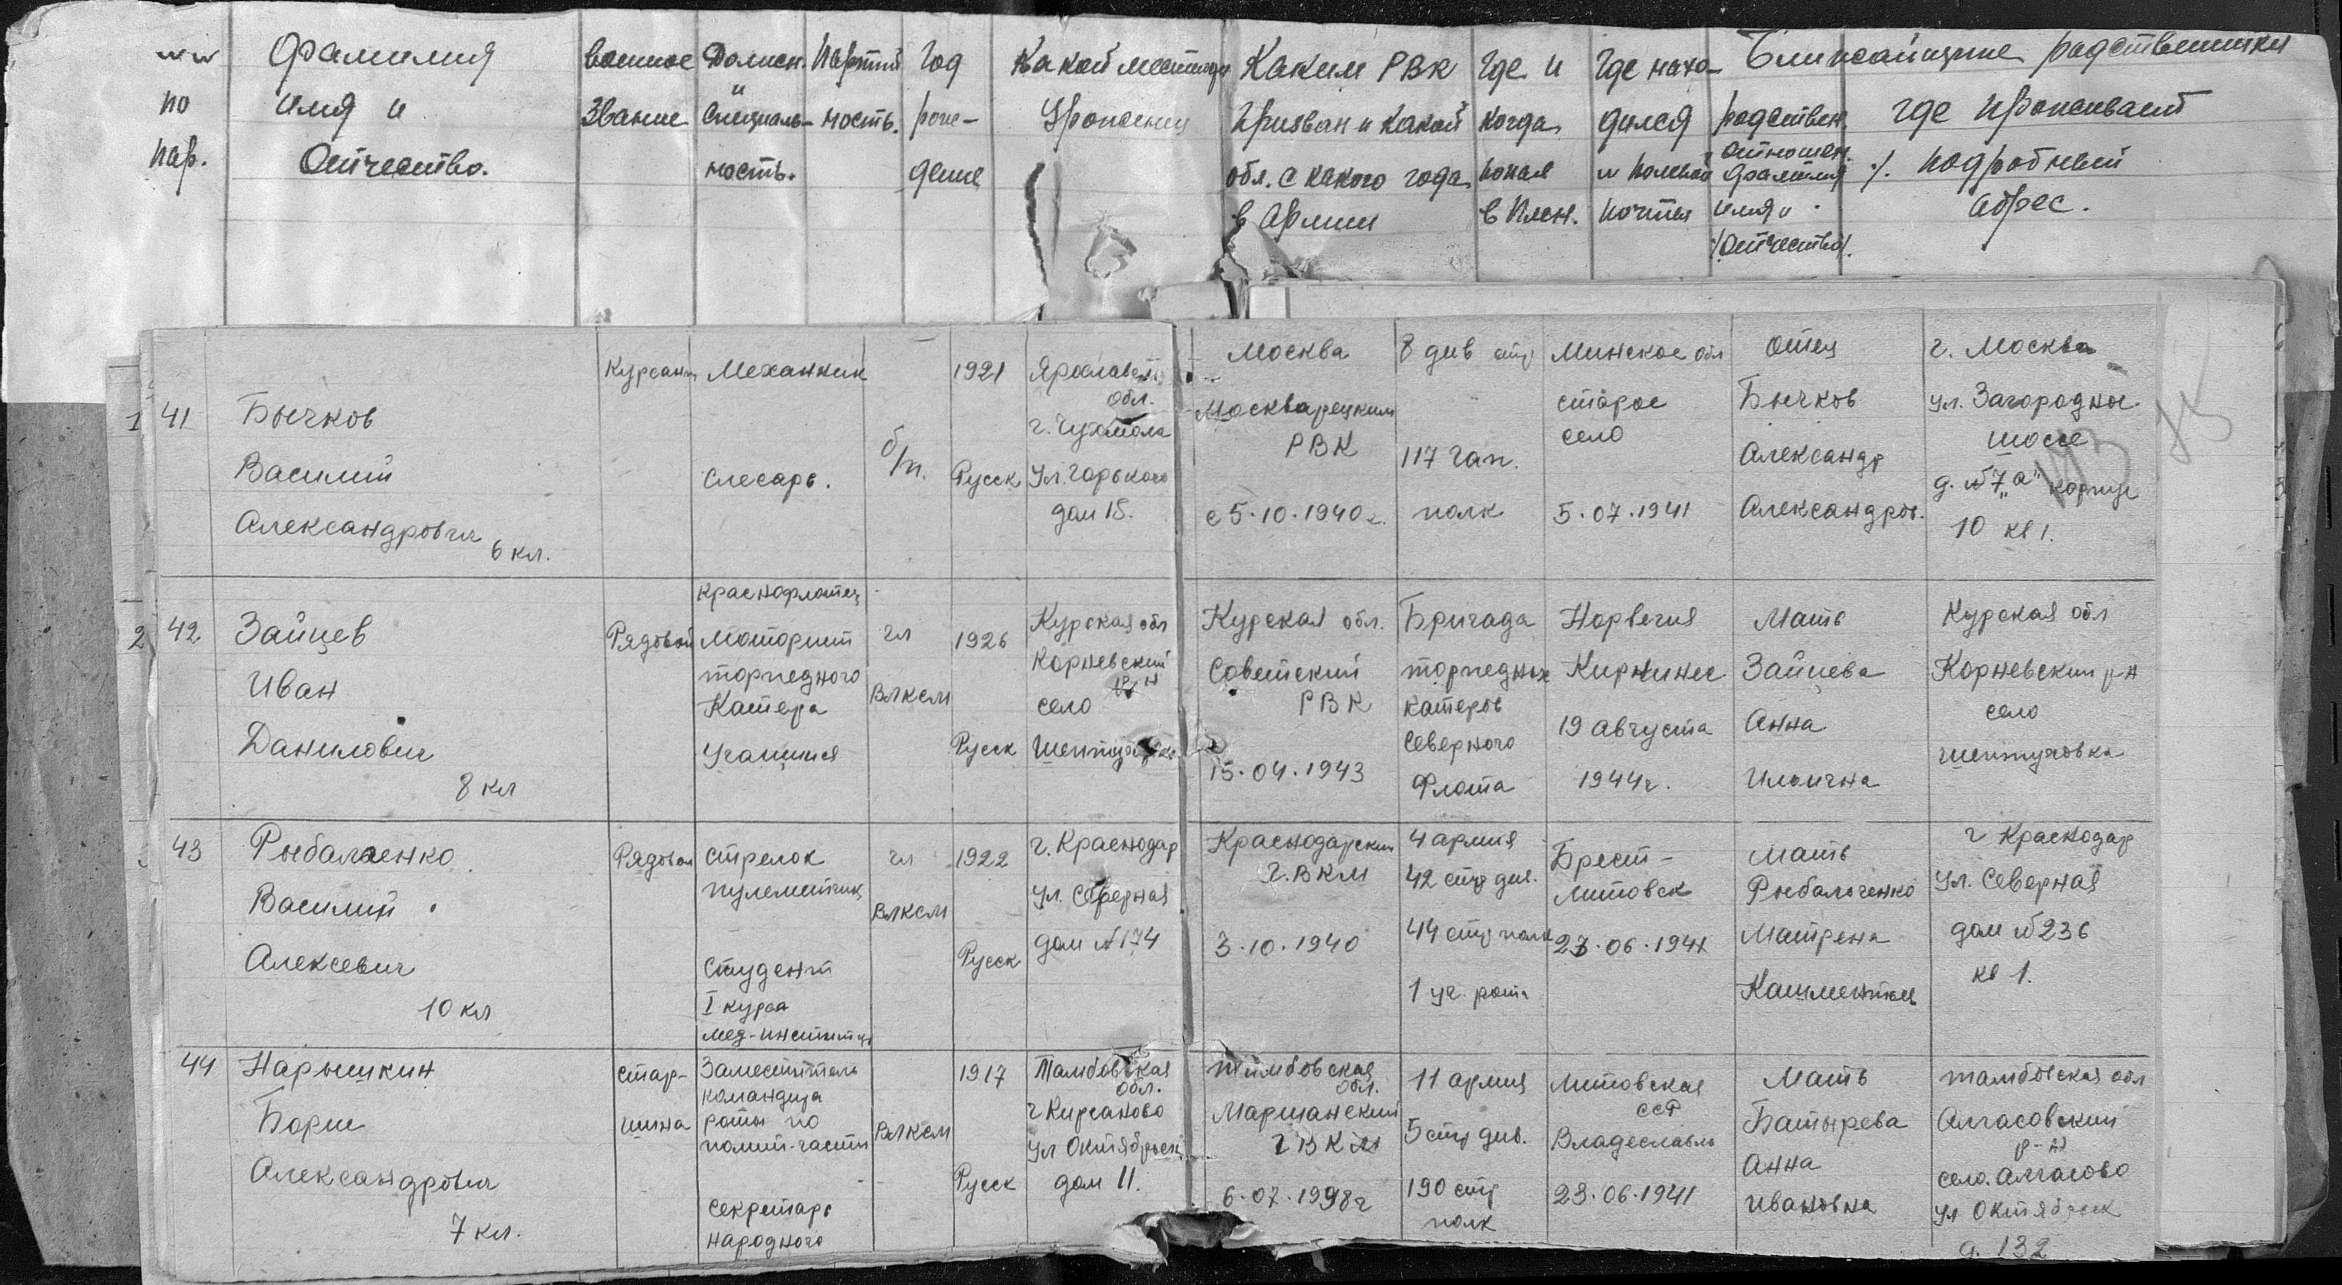 №№ по пар.
Фамилия имя и Отчество.
военное звание
Должн. и специаль-ность.
Партий ность.
Год рож-дение
Какой местнос
Урожениц
Каким РВК призван и какой обл. с какого года в Армии
Где и когда попал в плен.
Где нахо-дился и полевой почта
Ближайшие родственники
родствен. отношен. фамилия имя и /отчество/.
где проживает /. подробный адрес.
1 41
Бычков
Василий
Александрович
6 кл.
Курсант
Механник
слесарь.
б/п.
1921
Русск
Ярославск
обл.
г. Чухлома
ул. Горького
дом 15.
Москва
Москварецким
РВК
с 5.10.1940 г.
8 див стр
117 гап.
полк
Минское обл
старое
село
5.07.1941
Отец
Бычков
Александр
Александров.
г. Москва
ул. Загородное
шоссе
д. №7 "а" корпус
10 кв 1.
193
2 42
Зайцев
Иван
Данилович
8 кл
Рядовой
Краснофлотец
моторист
торпедного
Катера
Учащийся
чл
ВЛКСМ
1926
Русск
Курская обл
Корневский
р-н
село
Шептуховка
Курская обл.
Советский
РВК
15.04.1943
Бригада
торпедных
катеров
Северного
Флота
Норвегия
Киркинес
19 августа
1944 г.
Мать
Зайцева
Анна
Ильична
Курская обл
Корневский р-н
село
Шептуховка
43
Рыбалченко
Василий
Алексевич
10 кл
Рядовой
стрелок
пулеметчик
Студент
I курса
мед-института
чл
ВЛКСМ
1922
Русск
г. Краснодар
ул. Северная
дом №174
Краснодарским
г. ВКМ
3.10.1940
4 армия
42 стр див.
44 стр полк
1 уч. рота
Брест-
Литовск
23.06.1941
Мать
Рыбальченко
Матрена
г Краснодар
ул. Северная
дом №236
кв 1.
44
Нарышкин
Борис
Александрович
7 кл.
стар-
шина
Заместитель
командира
роты по
полит-части
секретарь
народного
ВЛКСМ
1917
Русск
Тамбовская
обл.
г Кирсаново
ул Октябрьск
дом 11.
Тамбовская
обл.
Маршанский
г ВКМ
6.07.1938 г
11 армия
5 стр див.
190 стр
полк
Литовская
ССР
Владеславль
23.06.1941
Мать
Батырева
Анна
Ивановна
Тамбовская обл
Алгасовский
р-н
село. Алгасово
ул Октябрьск
д. 132